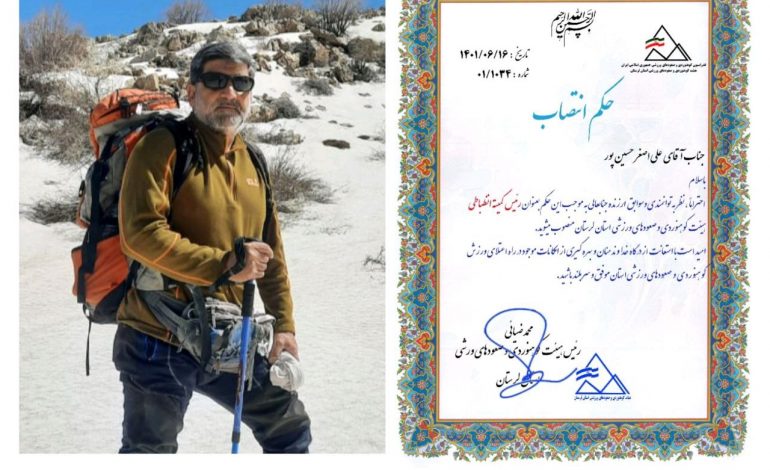 بسم الله الرحمن الرحیم
تاریخ : ۱۴۰۱/۰۶/۱۶
شماره : ۰۱/۱۰۳۴
فدراسیون کوهنوردی و صعودهای ورزشی جمهوری اسلامی ایران
هیئت کوهنوردی و صعودهای ورزشی استان لرستان
حکم انتصاب
جناب آقای علی اصغر حسین پور
باسلام
احتراما، نظر به توانمندی و سوابق ارزنده جنابعالی به موجب این حکم بعنوان رئیس کمیته انضباطی
هیئت کوهنوردی و صعودهای ورزشی استان لرستان منصوب میشوید.
امید است با استعانت از درگاه خداوند منان و بهره گیری از امکانات موجود در راه اعتلای ورزش
کوهنوردی و صعودهای ورزشی استان موفق و سربلند باشید.
محمد ضیائی
رئیس هیئت کوهنوردی و صعودهای ورزشی
استان لرستان
هیئت کوهنوردی و صعودهای ورزشی استان لرستان